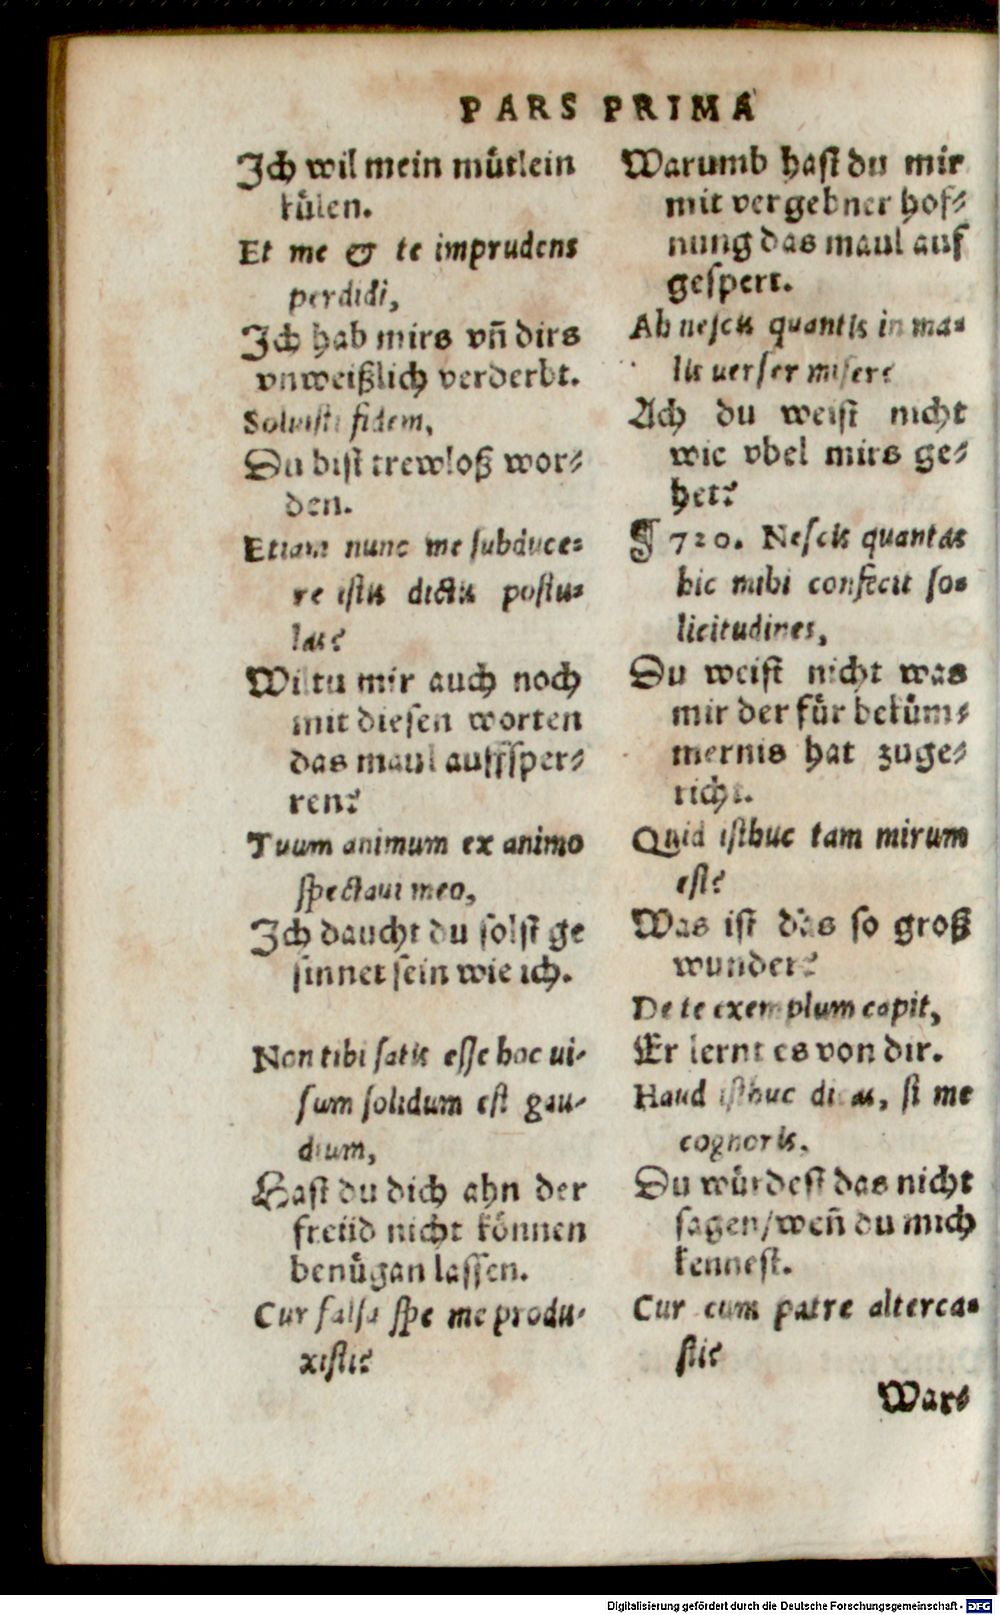 PARS PRIMA
Ich wil mein muͤtlein
kuͤlen.
Et me & te imprudens
perdidi,
Ich hab mirs vñ dirs
vnweißlich verderbt.
Soluisti fidem,
Du bist trewloß wor⸗
den.
Etiam nunc me subduce⸗
re istis dictis postu⸗
las?
Wiltu mir auch noch
mit diesen worten
das maul auffsper⸗
ren?
Tuum animum ex animo
spectaui meo,
Ich daucht du solst ge
sinnet sein wie ich.
Non tibi satis esse hoc ui⸗
sum solidum est gau⸗
dium,
Hast du dich ahn der
freüd nicht koͤnnen
benuͤgan lassen.
Cur falsa spe me produ⸗
xisti?
Warumb hast du mir
mit vergebner hof⸗
nung das maul auf
gespert.
Ah nescis quantis in ma⸗
lis uerser misere
Ach du weist nicht
wie vbel mirs ge⸗
het?
¶ 720. Nescis quantas
hic mihi confecit so⸗
licitudines,
Du weist nicht was
mir der fuͤr bekuͤm⸗
mernis hat zuge⸗
richt.
Quid isthuc tam mirum
est?
Was ist das so groß
wunder?
De te exemplum capit,
Er lernt es von dir.
Haud isthuc dicas, si me
cognoris,
Du wuͤrdest das nicht
sagen/weñ du mich
kennest.
Cur cum patre alterca⸗
sti?
War⸗
Digitalisierung gefördert durch die Deutsche Forschungsgemeinschaft - DFG